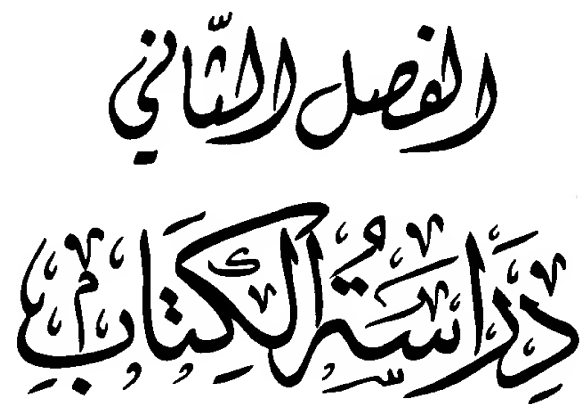 الفصل الثّاني
دِرَاسَةُ الكِتَابِ